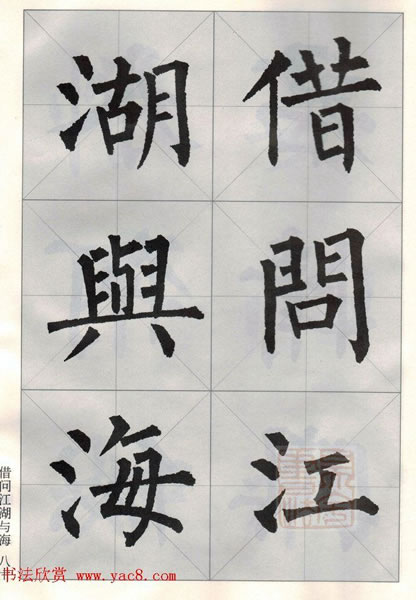 借問江
湖與海
借问江湖与海 八
书法欣赏 www.yac8.com